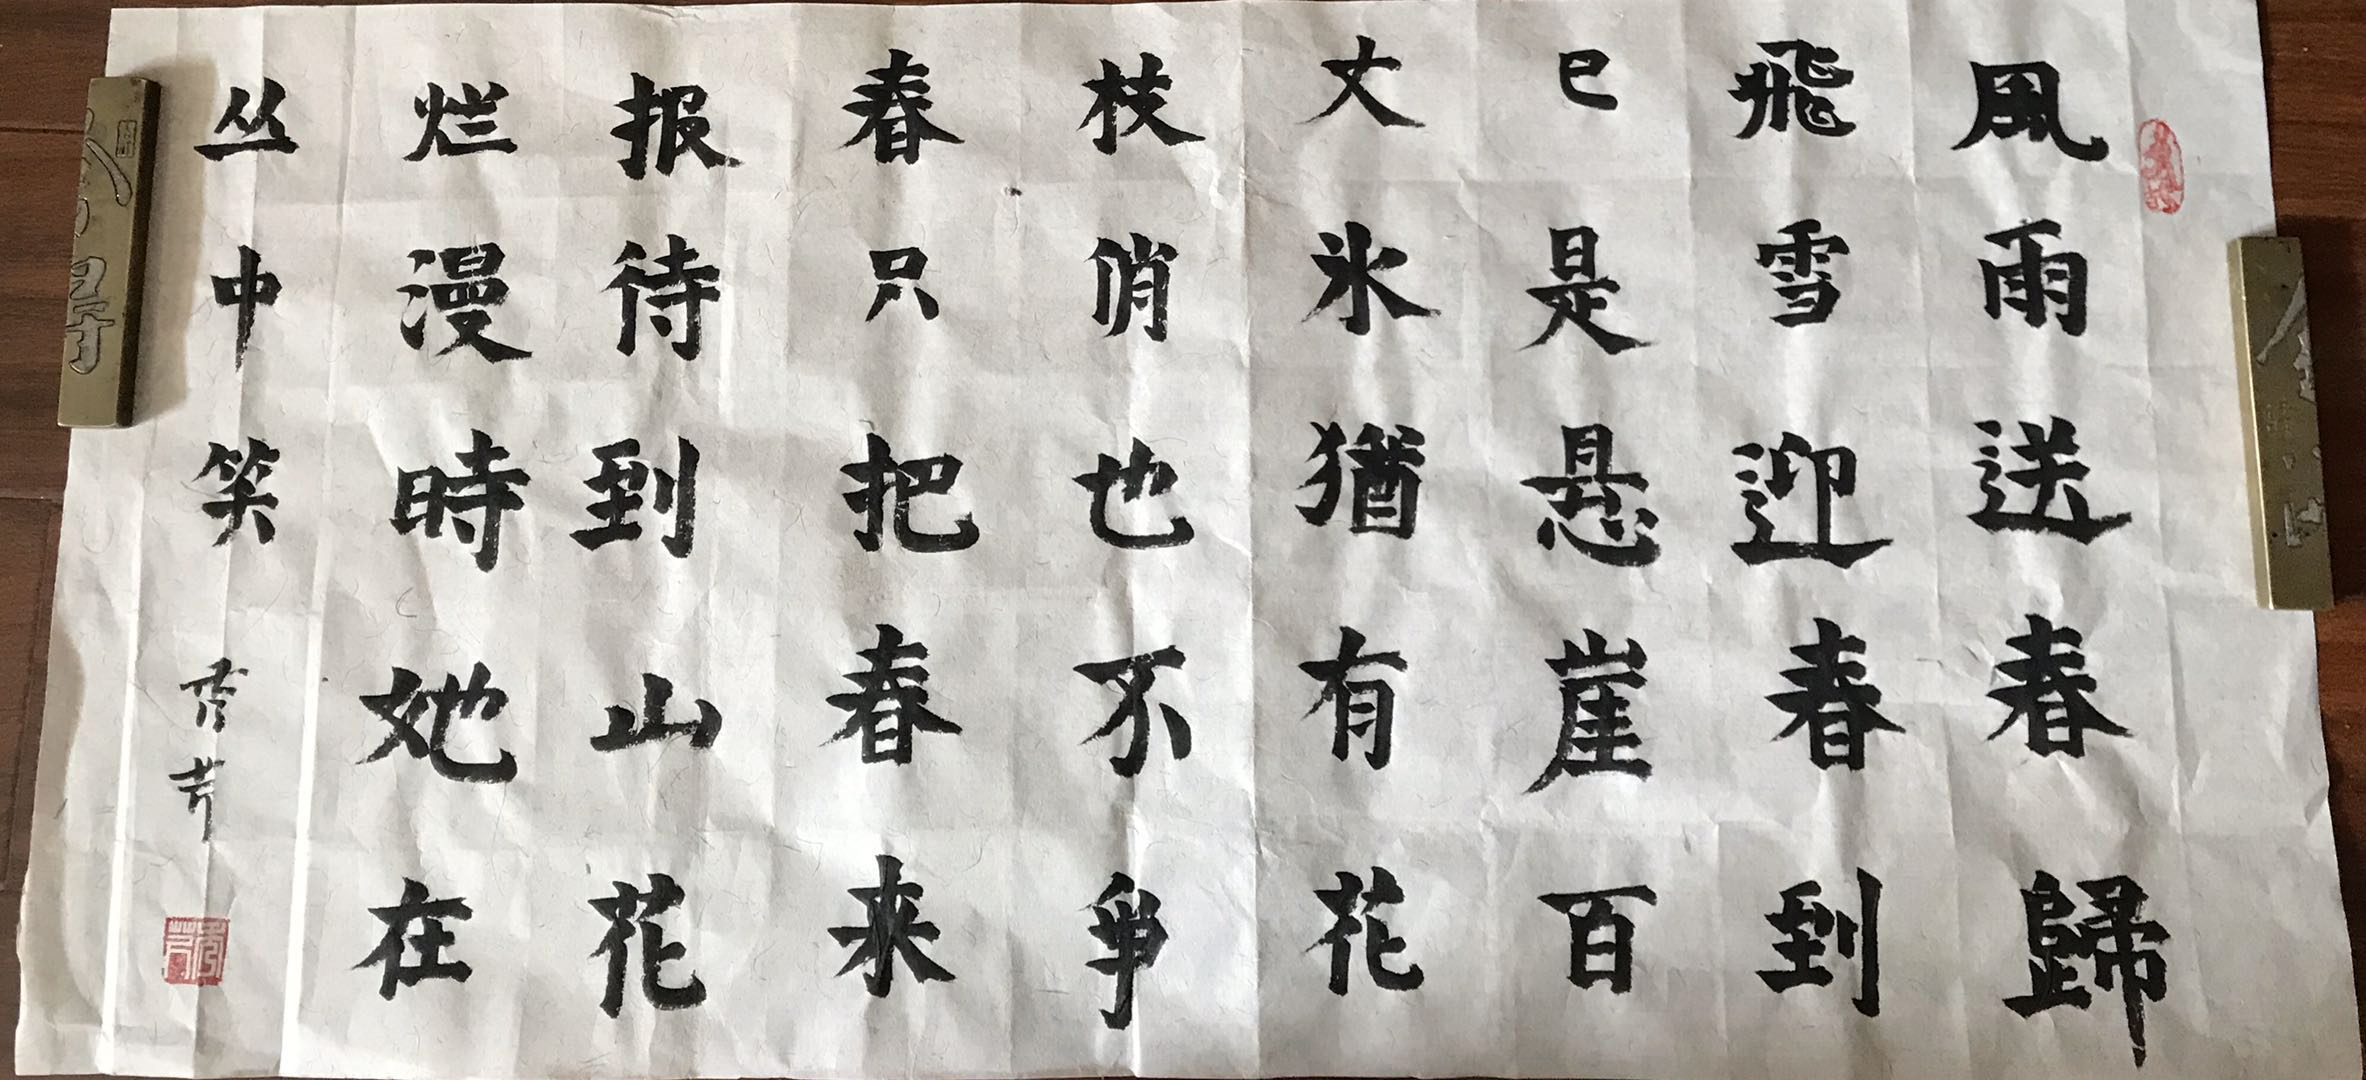 風雨送春歸
飛雪迎春到
已是悬崖百
丈氷猶有花
枝俏也不爭
春只把春来
报待到山花
烂漫時她在
丛中笑